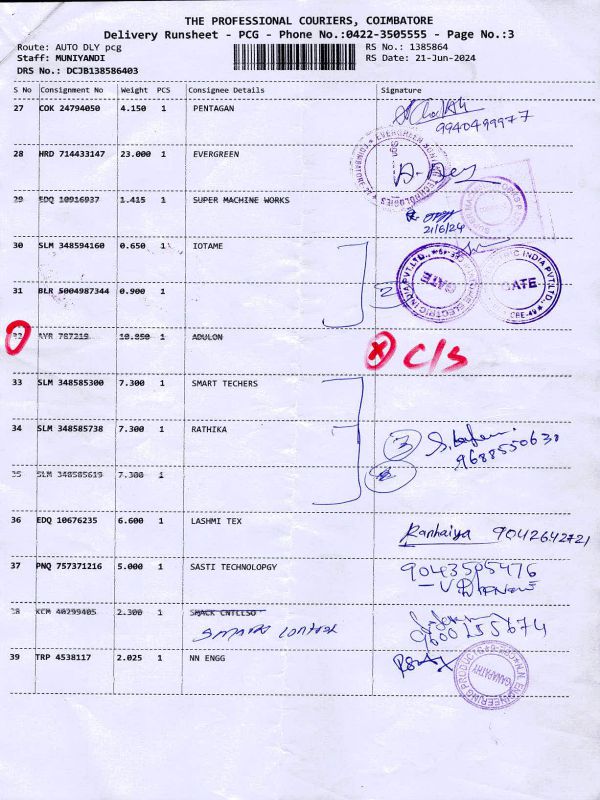 THE PROFESSIONAL COURIERS, COIMBATORE
Delivery Runsheet - PCG - Phone No.:0422-3505555 - Page No.:3
Route: AUTO DLY pcg
RS No.: 1385864
Staff: MUNIYANDI
RS Date: 21-Jun-2024
DRS No.: DCJB138586403
S No Consignment No Weight PCS Consignee Details Signature
27 COK 24794050 4.150 1 PENTAGAN
9940499977
28 HRD 714433147 23.000 1 EVERGREEN
29 EDQ 10916937 1.415 1 SUPER MACHINE WORKS
21/6/24
30 SLM 348594160 0.650 1 IOTAME
31 BLR 5004987344 0.900 1
2
GATE
GATE
CBE-49
32 AYR 787219 10.850 1 ADULON
X C/S
33 SLM 348585300 7.300 1 SMART TECHERS
34 SLM 348585738 7.300 1 RATHIKA
3
35 SLM 348585619 7.300 1
36 EDQ 10676235 6.600 1 LASHMI TEX
Kanhaiya 9042642721
37 PNQ 757371216 5.000 1 SASTI TECHNOLOPGY
9043505476
38 KCM 40299405 2.300 1 SMACK CNTCLSO
9600155674
39 TRP 4538117 2.025 1 NN ENGG
GANAPATHY